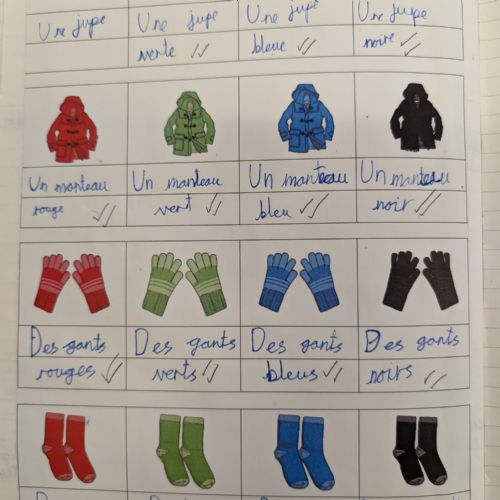 Une jupe Une jupe Une jupe Une jupe
verte bleue noire
Un manteau Un manteau Un manteau Un manteau
rouge vert bleu noir
Des gants Des gants Des gants Des gants
rouges verts bleus noirs